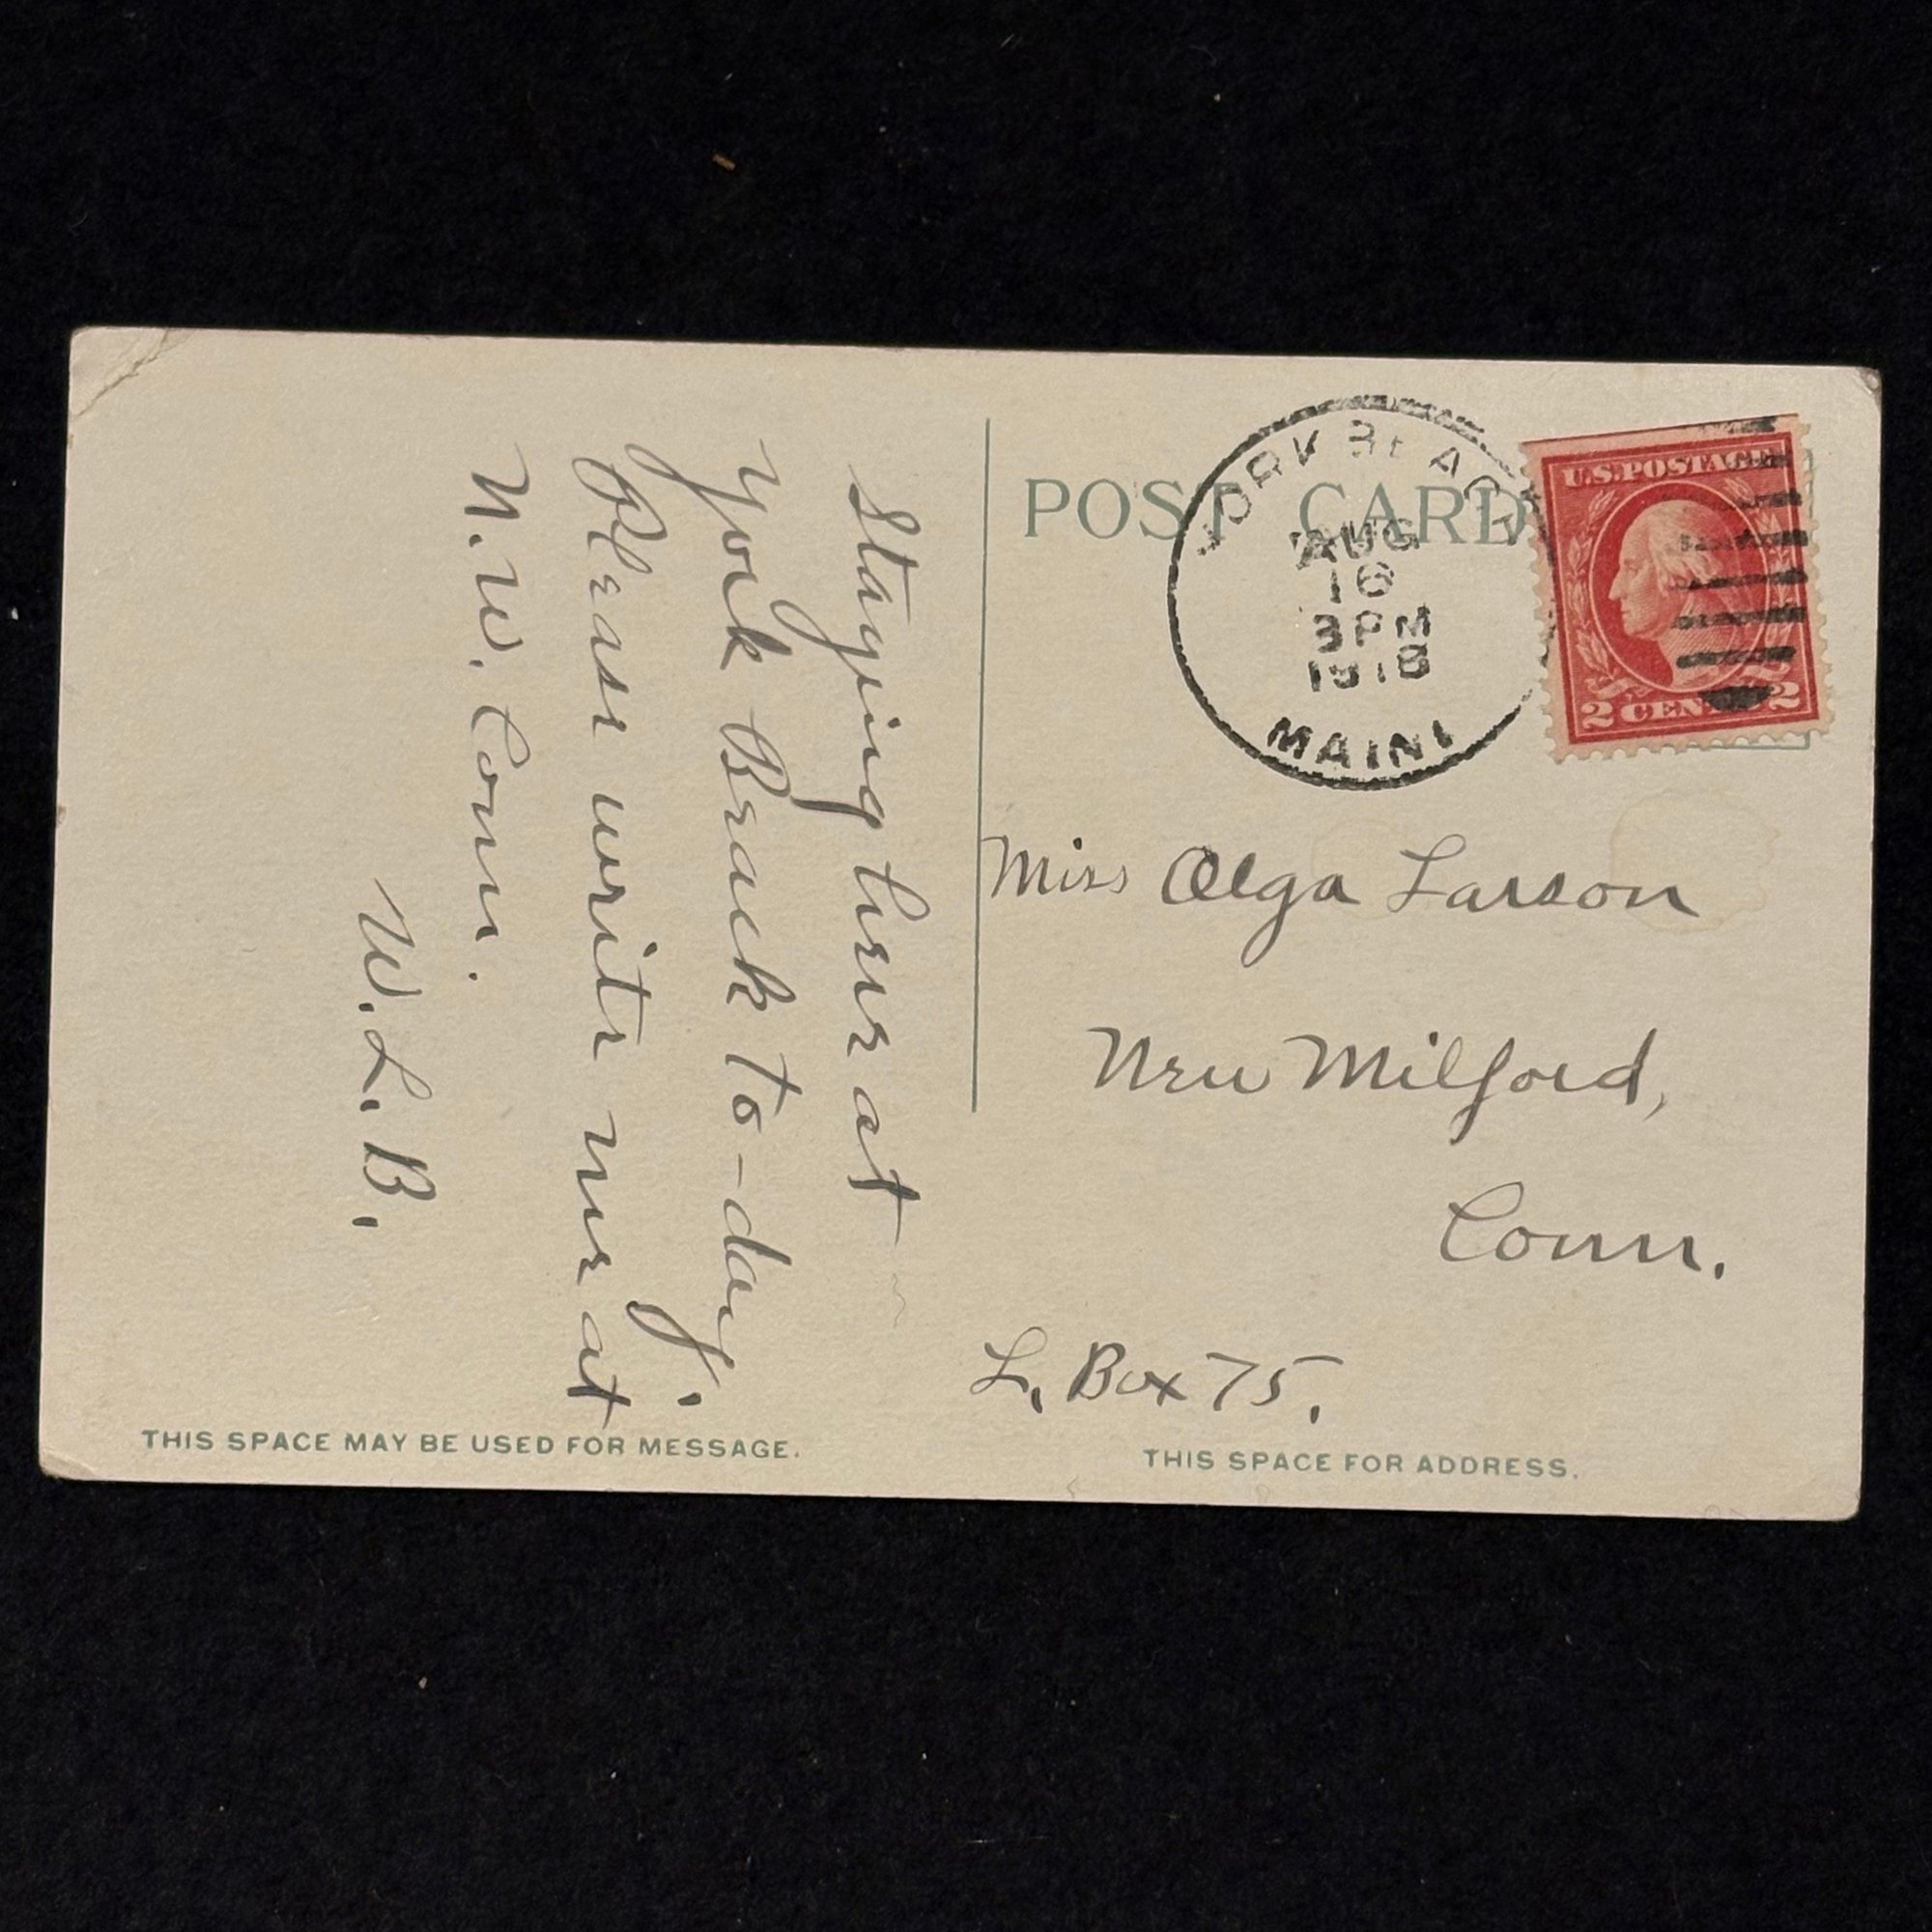 Staying here at
York Beach to-day.
Please write me at
N.W. Conn.
W.L.B.
THIS SPACE MAY BE USED FOR MESSAGE.
POST CARD
YORK BEACH
AUG
16
3 PM
1918
MAINE
U.S. POSTAGE
2 CENTS 2
Miss Olga Larson
New Milford,
Conn.
L. Box 75.
THIS SPACE FOR ADDRESS.